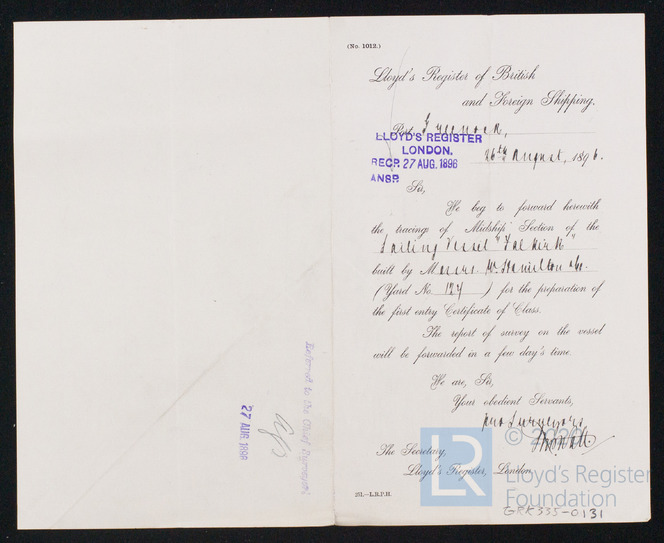 (No. 1012.)
Lloyd's Register of British
and Foreign Shipping,
Port Greenock,
LLOYD'S REGISTER
LONDON.
RECD. 27 AUG. 1896
ANSD.
26th August, 1896.
Sir,
We beg to forward herewith
the tracings of Midship Section of the
Sailing Vessel "Falkirk"
built by Messrs. W. Hamilton & Co.
(Yard No. 124) for the preparation of
the first entry Certificate of Class.
The report of survey on the vessel
will be forwarded in a few day's time.
We are, Sir,
Your obedient Servants,
pro Surveyors
The Secretary,
Lloyd's Register, London.
2M.—L.R.P.H.
Referred to the Chief Surveyor
27 AUG. 1896
© 2020
LR
Lloyd's Register
Foundation
GRK335-0131